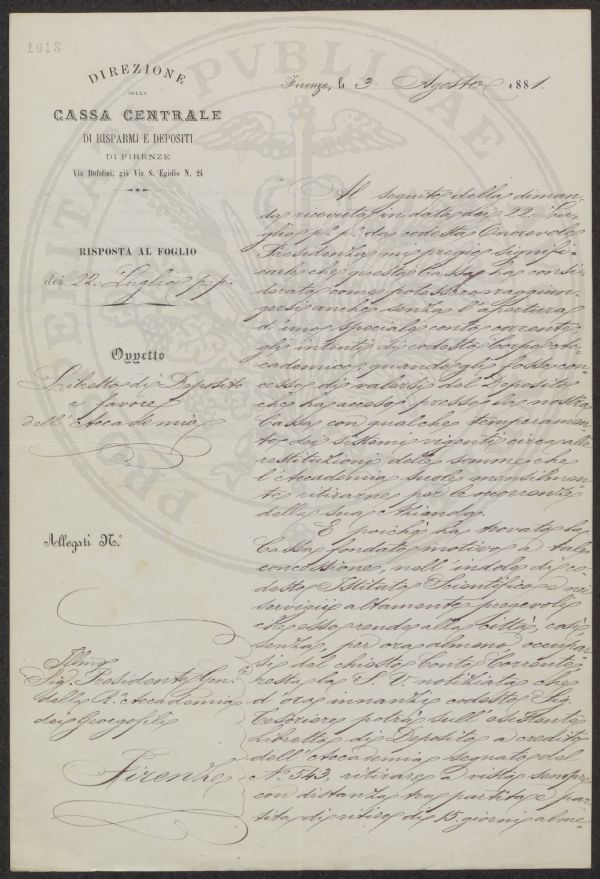 1018
DIREZIONE
DELLA
CASSA CENTRALE
DI RISPARMI E DEPOSITI
DI FIRENZE
Via Bufalini, già Via S. Egidio N. 24
RISPOSTA AL FOGLIO
dei 22 Luglio p.p.
Oggetto
Libretto di Deposito
a favore
dell'Accademia
Allegati N.º
Illmo
Sig. Presidente Gen.
della R. Accademia
dei Georgofili
Firenze
Firenze, li 3 Agosto 1881.
Al seguito della diman-
da ricevuta in data dei 22 Lu-
glio p.º p.º da codesta Onorevole
Presidenza mi pregio signifi-
carle che questa Cassa ha consi-
derato come potessero raggiun-
gersi anche senza l'apertura
d'uno speciale conto corrente
gli intenti di codesto Corpo Ac-
cademico, quando gli fosse con-
cesso di valersi del Deposito
che ha acceso presso la nostra
Cassa con qualche temperamen-
to dei sistemi vigenti circa alle
restituzioni delle somme che
l'Accademia suole mensilmen-
te ritirare per le occorrenze
della sua Azienda.
E poichè ha trovato la
Cassa fondato motivo a tale
concessione, nell'indole di co-
desto Istituto Scientifico e nei
servigii altamente pregevoli
che esso rende alla Città, così,
senza, per ora almeno, occupar-
si del chiesto Conto Corrente
resta la S. V. notiziata che
d'ora innanzi codesto Sig.
Tesoriere potrà sull'esistente
Libretto di Deposito a credito
dell'Accademia segnato del
N.º 543, ritirare a vista sempre
con distanza tra partita e par-
tita di ritiro di 15 giorni alme-
PRO
VERITATE
PVBLICAE